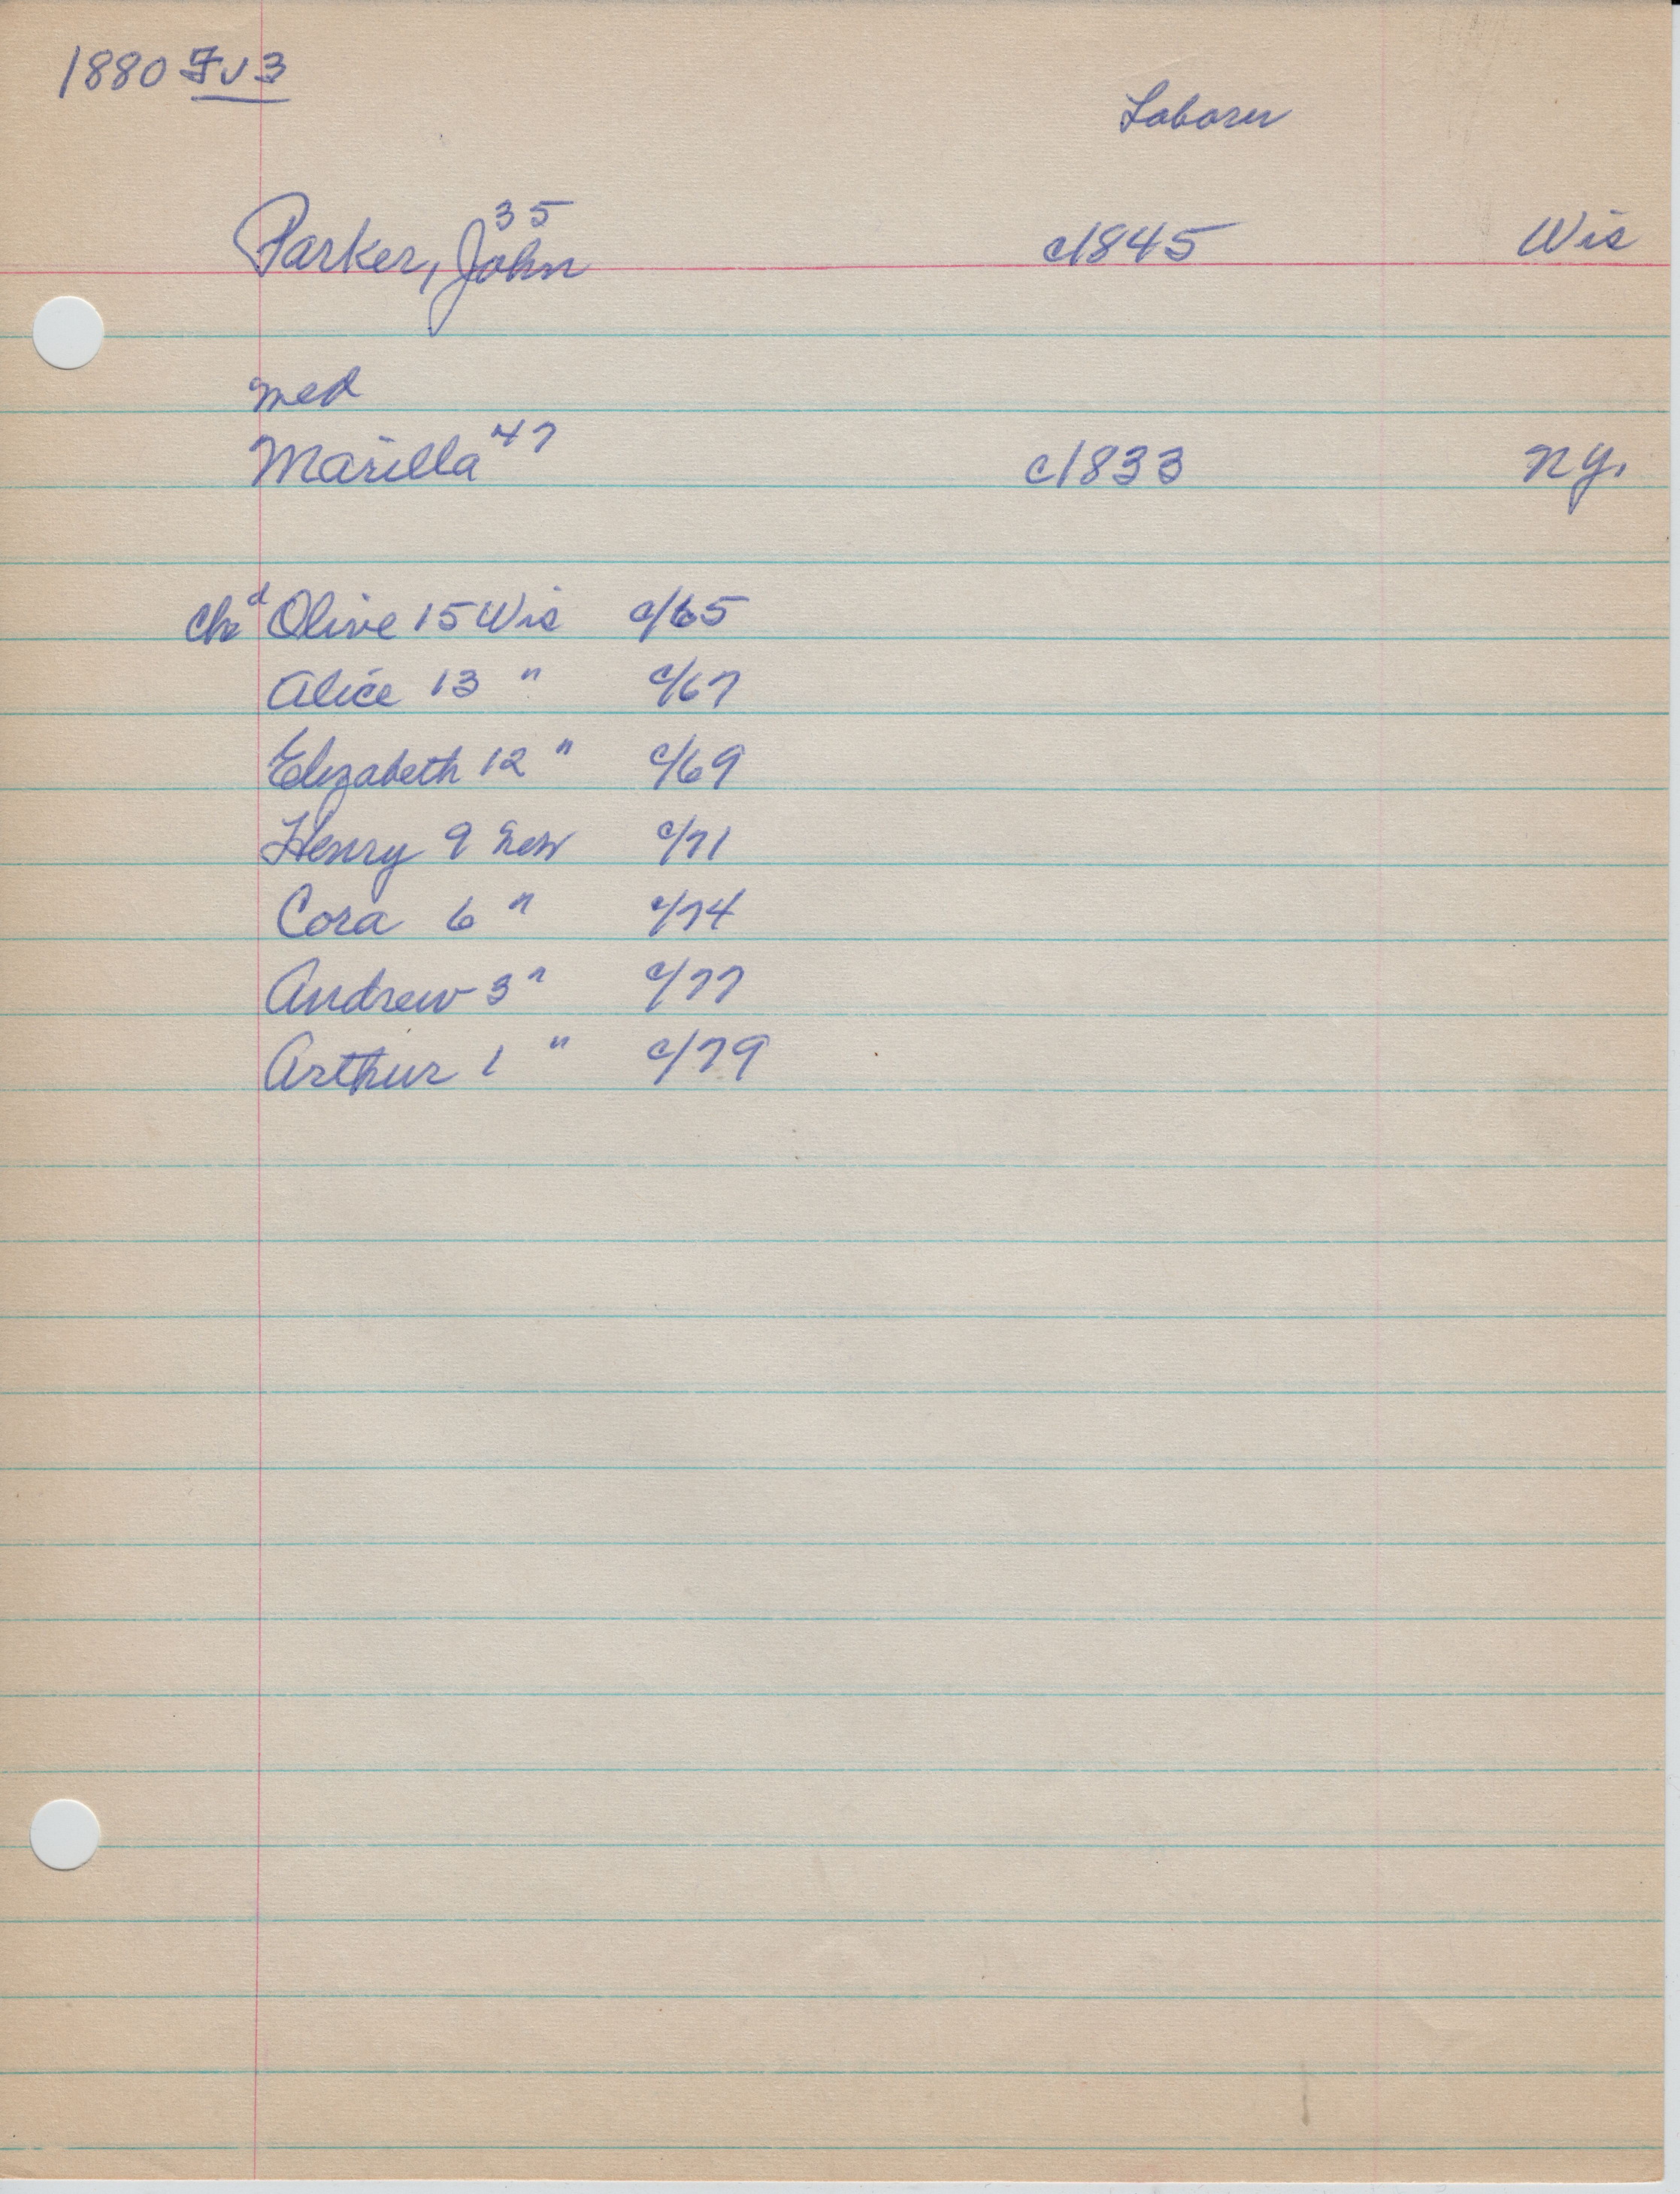 1880 Fv 3
Laborer
Parker, John 35 c1845 Wis
med
Marilla 47 c1833 N.Y.
chd Olive 15 Wis c/65
Alice 13 " c/67
Elizabeth 12 " c/69
Henry 9 c/71
Cora 6 " c/74
Andrew 3 " c/77
Arthur 1 " c/79